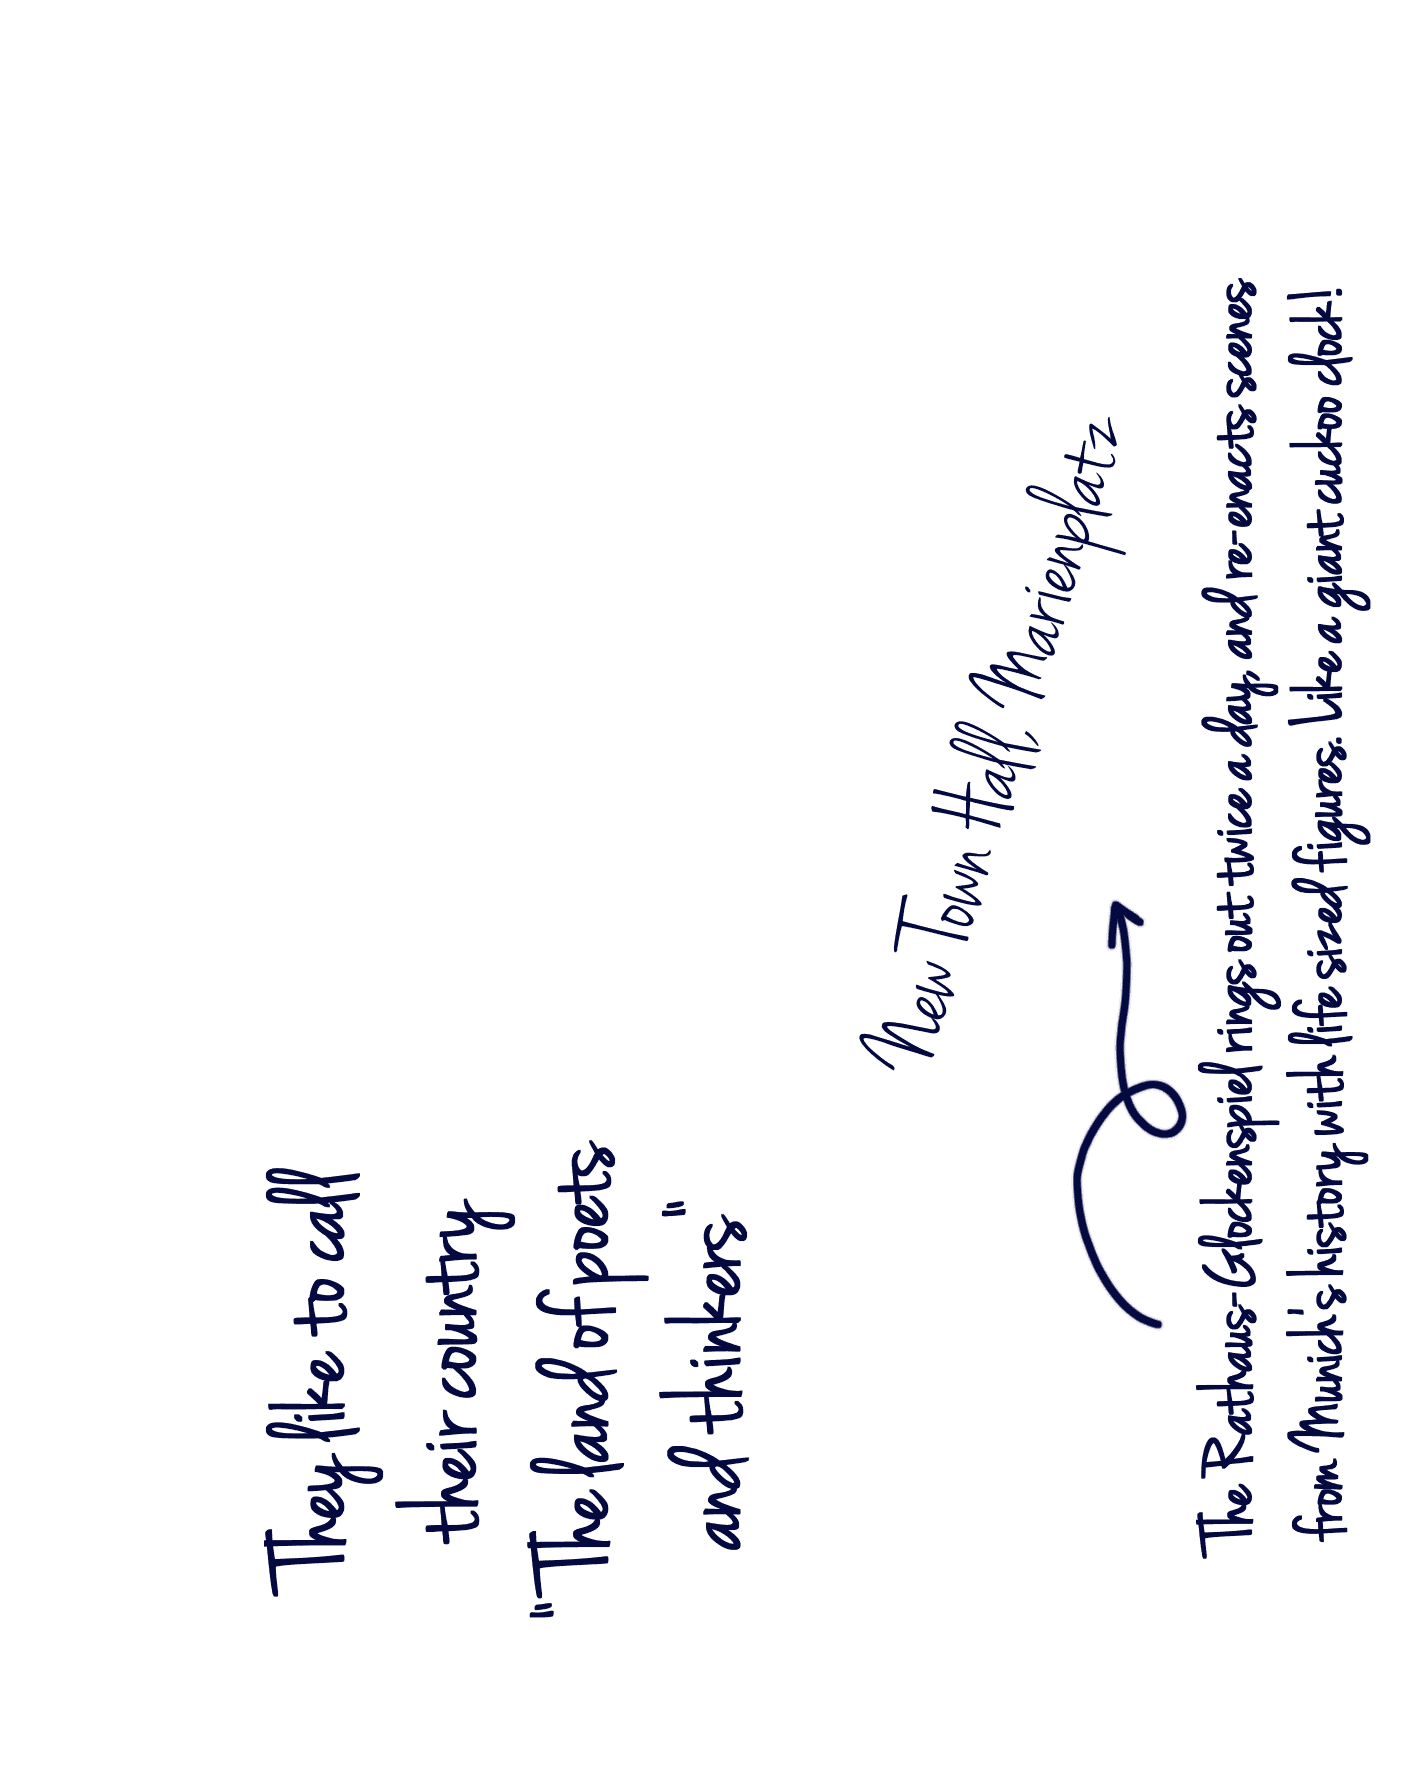 They like to call
their country
"The land of poets
and thinkers"
New Town Hall, Marienplatz
The Rathaus-Glockenspiel rings out twice a day, and re-enacts scenes
from Munich's history with life sized figures. Like a giant cuckoo clock!